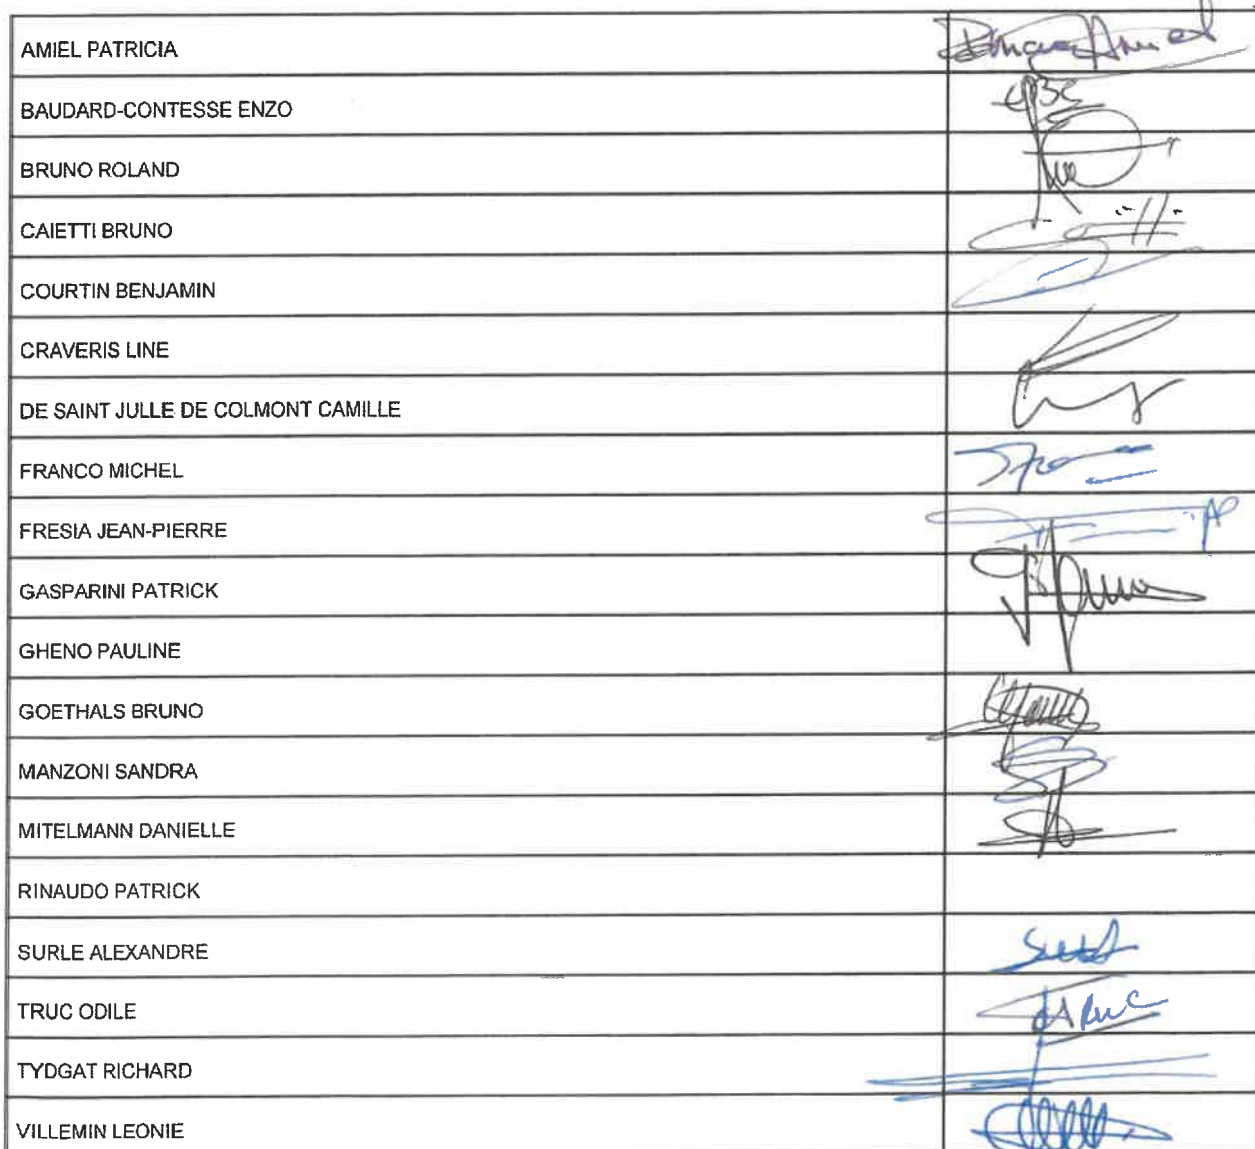 AMIEL PATRICIA
BAUDARD-CONTESSE ENZO
BRUNO ROLAND
CAIETTI BRUNO
COURTIN BENJAMIN
CRAVERIS LINE
DE SAINT JULLE DE COLMONT CAMILLE
FRANCO MICHEL
FRESIA JEAN-PIERRE
GASPARINI PATRICK
GHENO PAULINE
GOETHALS BRUNO
MANZONI SANDRA
MITELMANN DANIELLE
RINAUDO PATRICK
SURLE ALEXANDRE
TRUC ODILE
TYDGAT RICHARD
VILLEMIN LEONIE